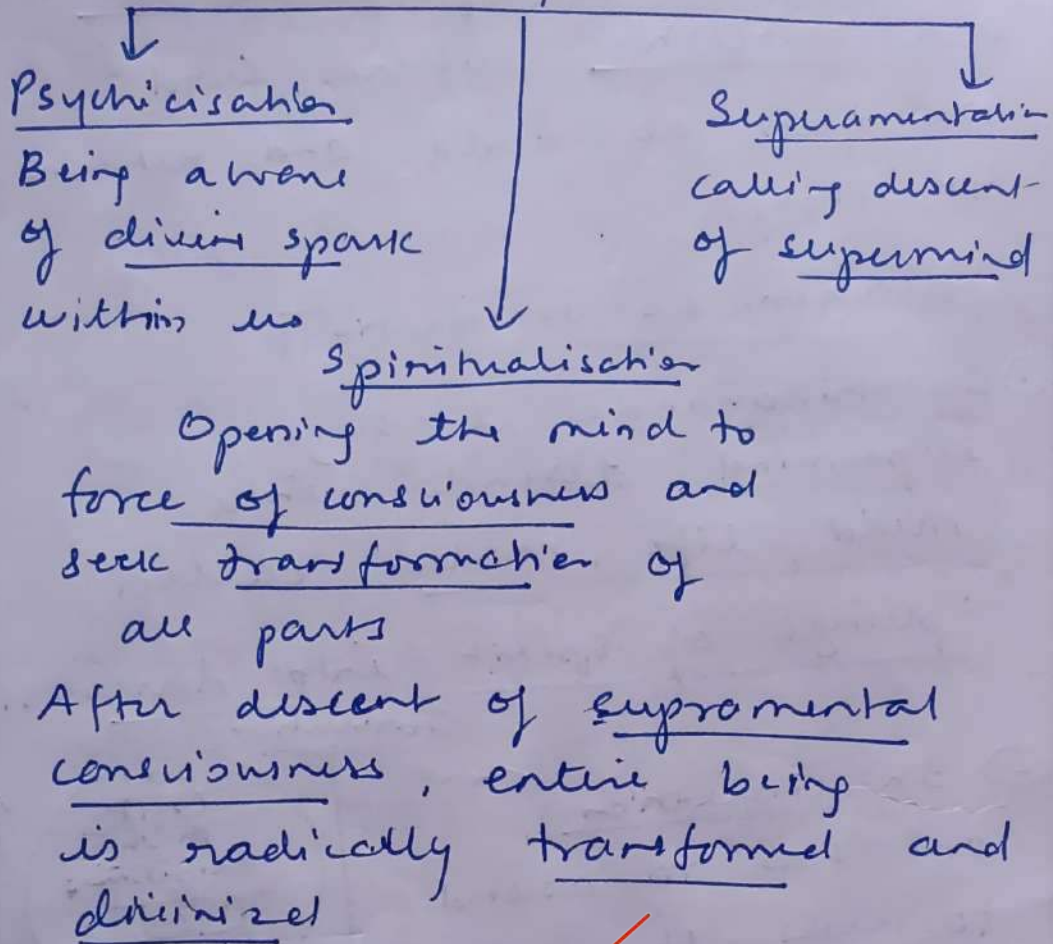 Psychicisation
Being aware
of divine spark
within us
Supramentalisation
calling descent
of supermind
Spiritualisation
Opening the mind to
force of consciousness and
seek transformation of
all parts
After descent of supramental
consciousness, entire being
is radically transformed and
divinized